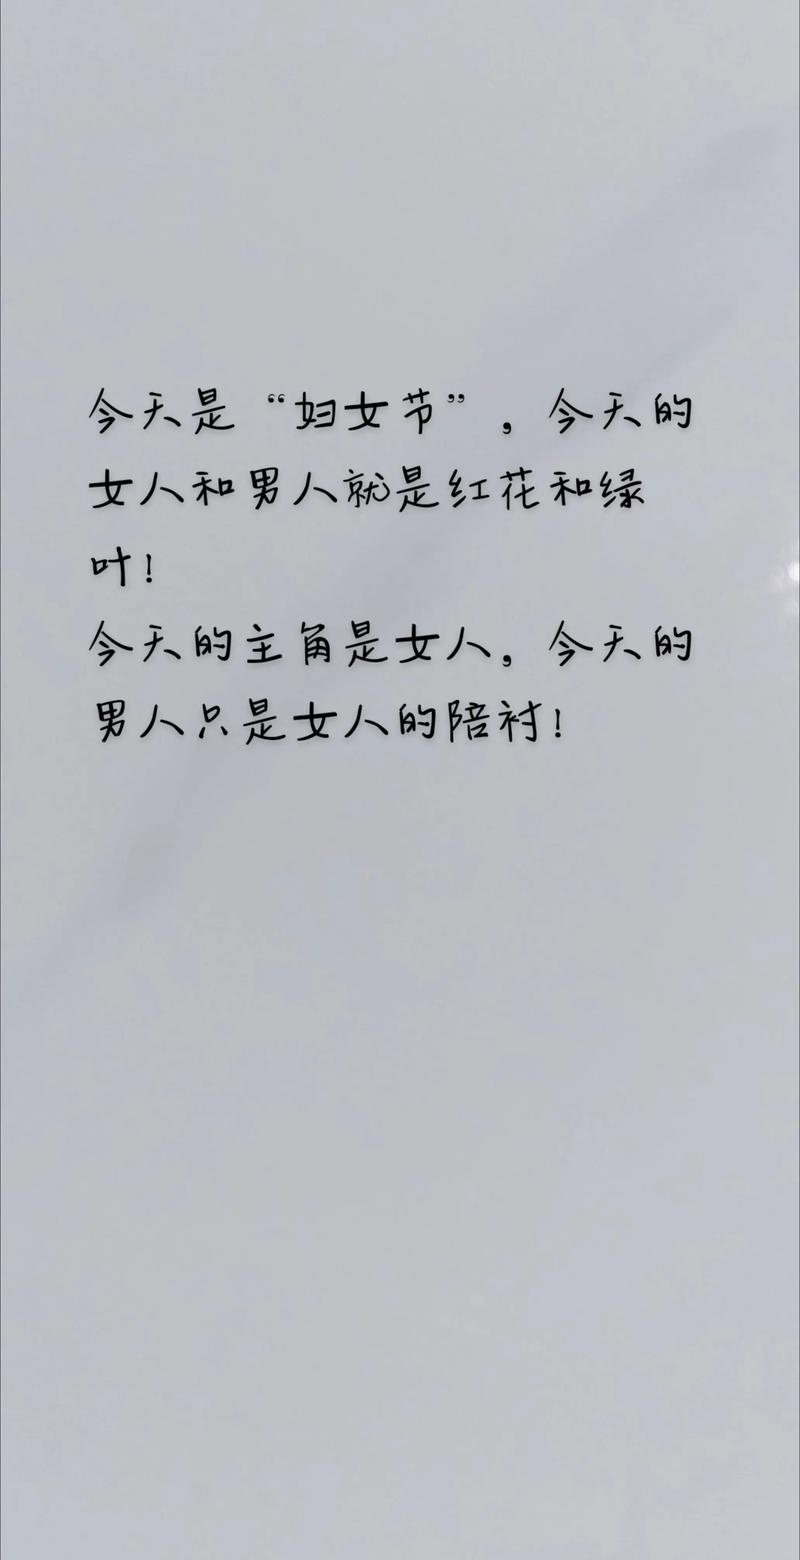 今天是“妇女节”，今天的
女人和男人就是红花和绿
叶！
今天的主角是女人，今天的
男人只是女人的陪衬！